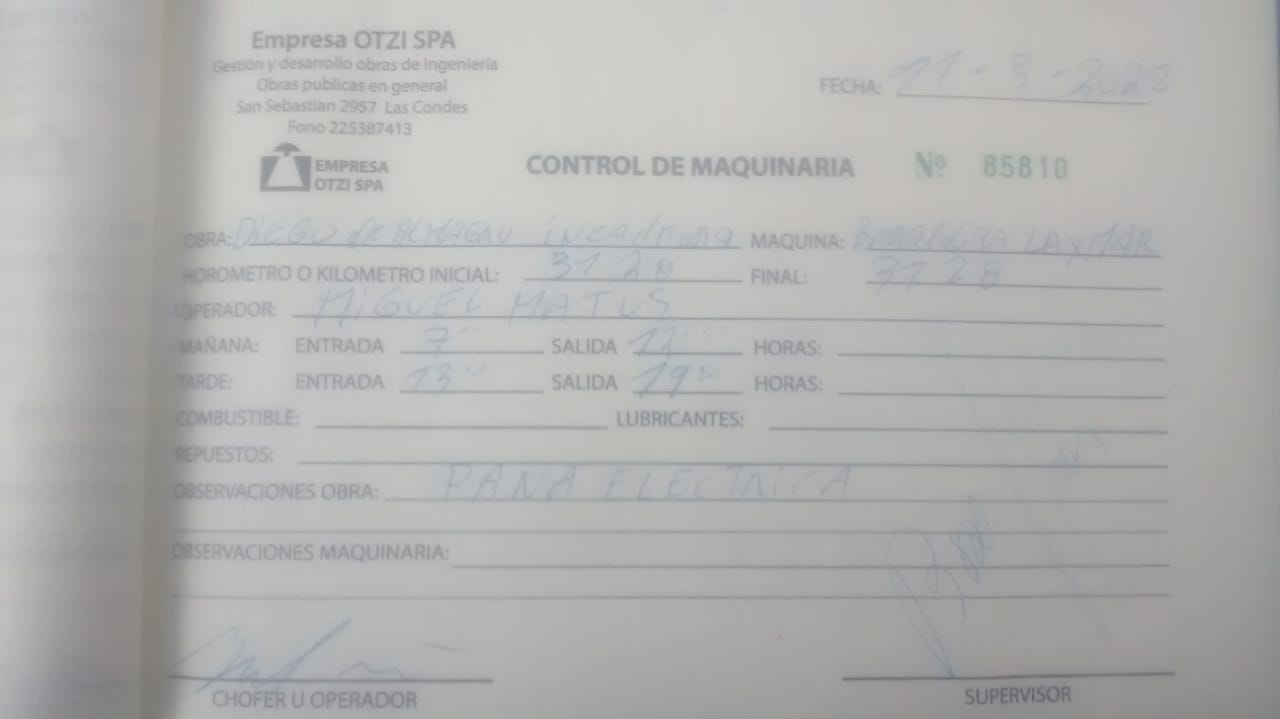 Empresa OTZI SPA
Gestión y desarrollo obras de Ingeniería
Obras publicas en general
San Sebastian 2957 Las Condes
Fono 225387413
FECHA: 11-3-2022
EMPRESA
OTZI SPA
CONTROL DE MAQUINARIA Nº 85810
OBRA: DiEGO de ALMAGRO MAQUINA: LAYMAR
HOROMETRO O KILOMETRO INICIAL: 3128 FINAL: 3128
OPERADOR: MiGUEL MATUS
MAÑANA: ENTRADA 7 SALIDA 12 HORAS:
TARDE: ENTRADA 13 SALIDA 19 HORAS:
COMBUSTIBLE: LUBRICANTES:
REPUESTOS:
OBSERVACIONES OBRA: PANA ELECTRiCA
OBSERVACIONES MAQUINARIA:
CHOFER U OPERADOR SUPERVISOR